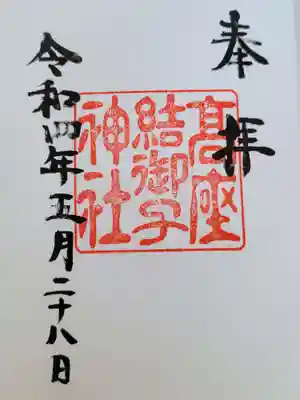 奉拝
高座
結御子
神社
令和四年五月二十八日